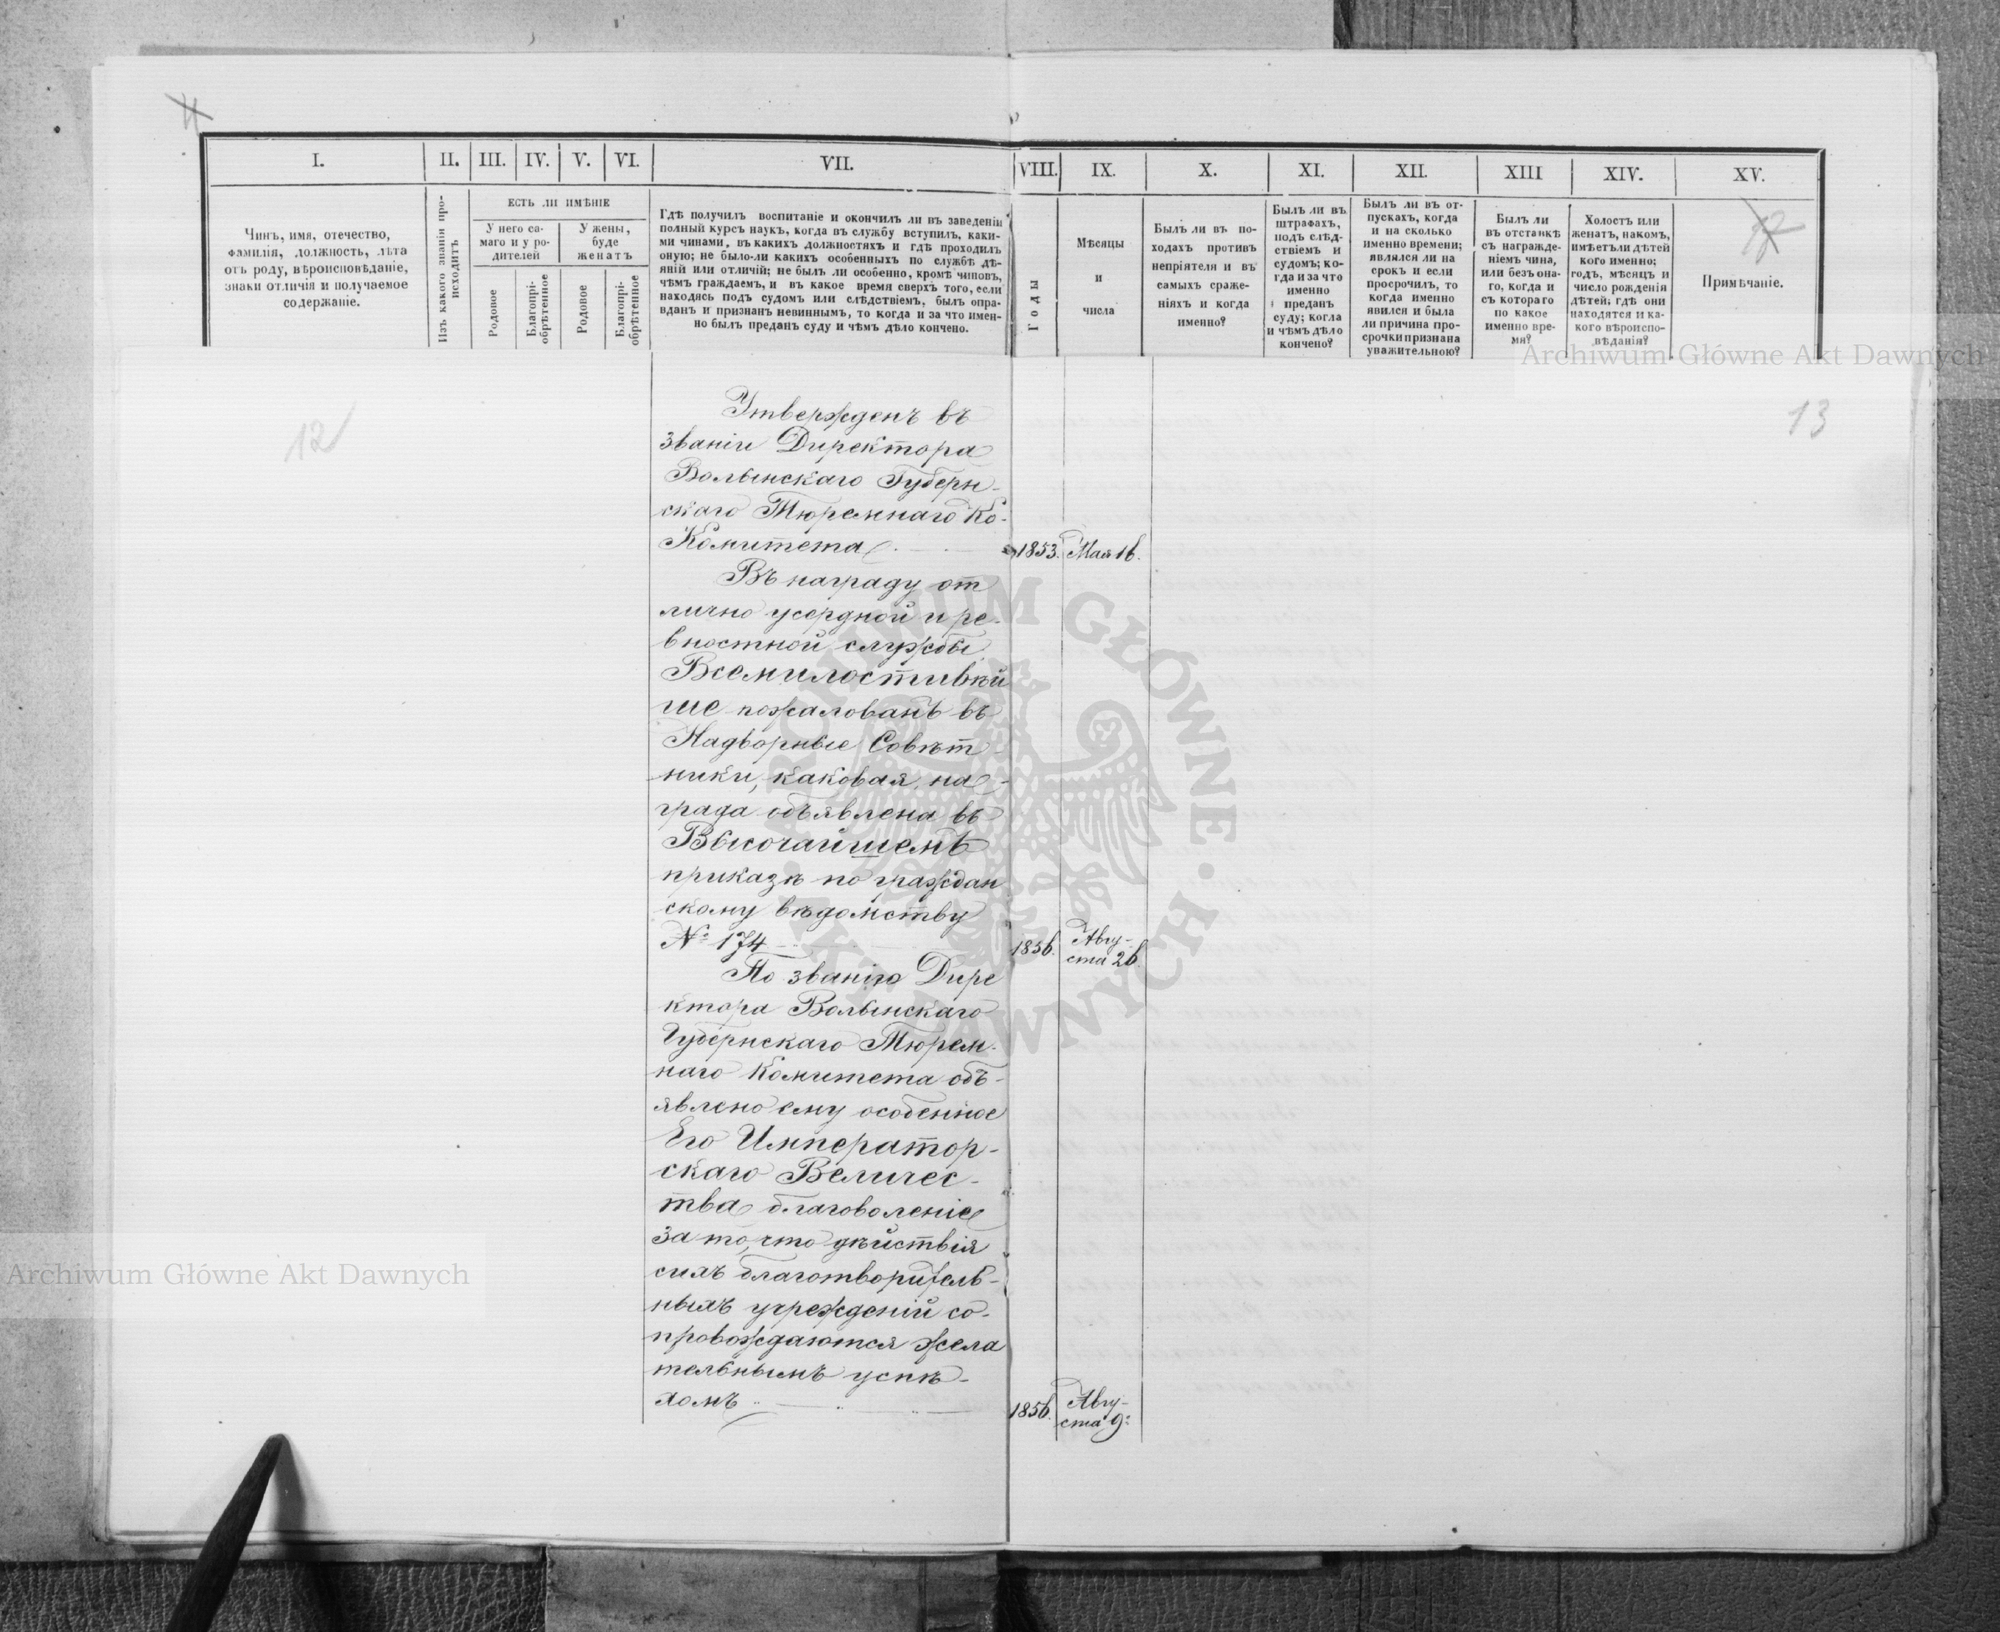 11
I.
II.
III.
IV.
V.
VI.
VII.
VIII.
IX.
X.
XI.
XII.
XIII
XIV.
XV.
Чинъ, имя, отечество,
фамилія, должность, лѣта
отъ роду, вѣроисповѣданіе,
знаки отличія и получаемое
содержаніе.
Изъ какого званія про-
исходитъ
ЕСТЬ ЛИ ИМѢНІЕ
У него са-
маго и у ро-
дителей
У жены,
буде
женатъ
Родовое
Благопрі-
обрѣтенное
Родовое
Благопрі-
обрѣтенное
Гдѣ получилъ воспитаніе и окончилъ ли въ заведеніи
полный курсъ наукъ, когда въ службу вступилъ, каки-
ми чинами, въ какихъ должностяхъ и гдѣ проходилъ
оную; не было-ли какихъ особенныхъ по службѣ дѣ-
яній или отличій; не былъ ли особенно, кромѣ чиновъ,
чѣмъ награждаемъ, и въ какое время сверхъ того, если
находясь подъ судомъ или слѣдствіемъ, былъ опра-
вданъ и признанъ невиннымъ, то когда и за что имен-
но былъ преданъ суду и чѣмъ дѣло кончено.
Годы
Мѣсяцы
и
числа
Былъ ли въ по-
ходахъ противъ
непріятеля и въ
самыхъ сраже-
ніяхъ и когда
именно?
Былъ ли въ
штрафахъ,
подъ слѣд-
ствіемъ и
судомъ; ко-
гда и за что
именно
преданъ
суду; когда
и чѣмъ дѣло
кончено?
Былъ ли въ от-
пускахъ, когда
и на сколько
именно времени;
являлся ли на
срокъ и если
просрочилъ, то
когда именно
явился и была
ли причина про-
срочки признана
уважительною?
Былъ ли
въ отставкѣ
съ награжде-
ніемъ чина,
или безъ она-
го, когда и
съ котораго
по какое
именно вре-
мя?
Холостъ или
женатъ, на комъ,
имѣетъ ли дѣтей
кого именно;
годъ, мѣсяцъ и
число рожденія
дѣтей; гдѣ они
находятся и ка-
кого вѣроиспо-
вѣданія?
12
Примѣчаніе.
Archiwum Główne Akt Dawnych
12
13
Утвержденъ въ
званіи Директора
Волынскаго Губерн-
скаго Тюремнаго Ко-
Комитета 1853. Мая 16.
Въ награду от
лично усердной и ре-
вностной службы
Всемилостивѣй
ше пожалованъ въ
Надворные Совѣт-
ники, каковая на-
града объявлена въ
Высочайшемъ
приказѣ по граждан
скому вѣдомству
№ 174 1856. Авгу-
ста 26.
По званію Дире
ктора Волынскаго
Губернскаго Тюрем-
наго Комитета объ-
явлено ему особенное
Его Император-
скаго Величес-
тва благоволеніе
за то, что дѣйствія
сихъ благотворитель-
ныхъ учрежденій со-
провождаются жела
тельнымъ успѣ-
хомъ 1856. Авгу-
ста 9.
ARCHIWUM GŁÓWNE AKT DAWNYCH
Archiwum Główne Akt Dawnych